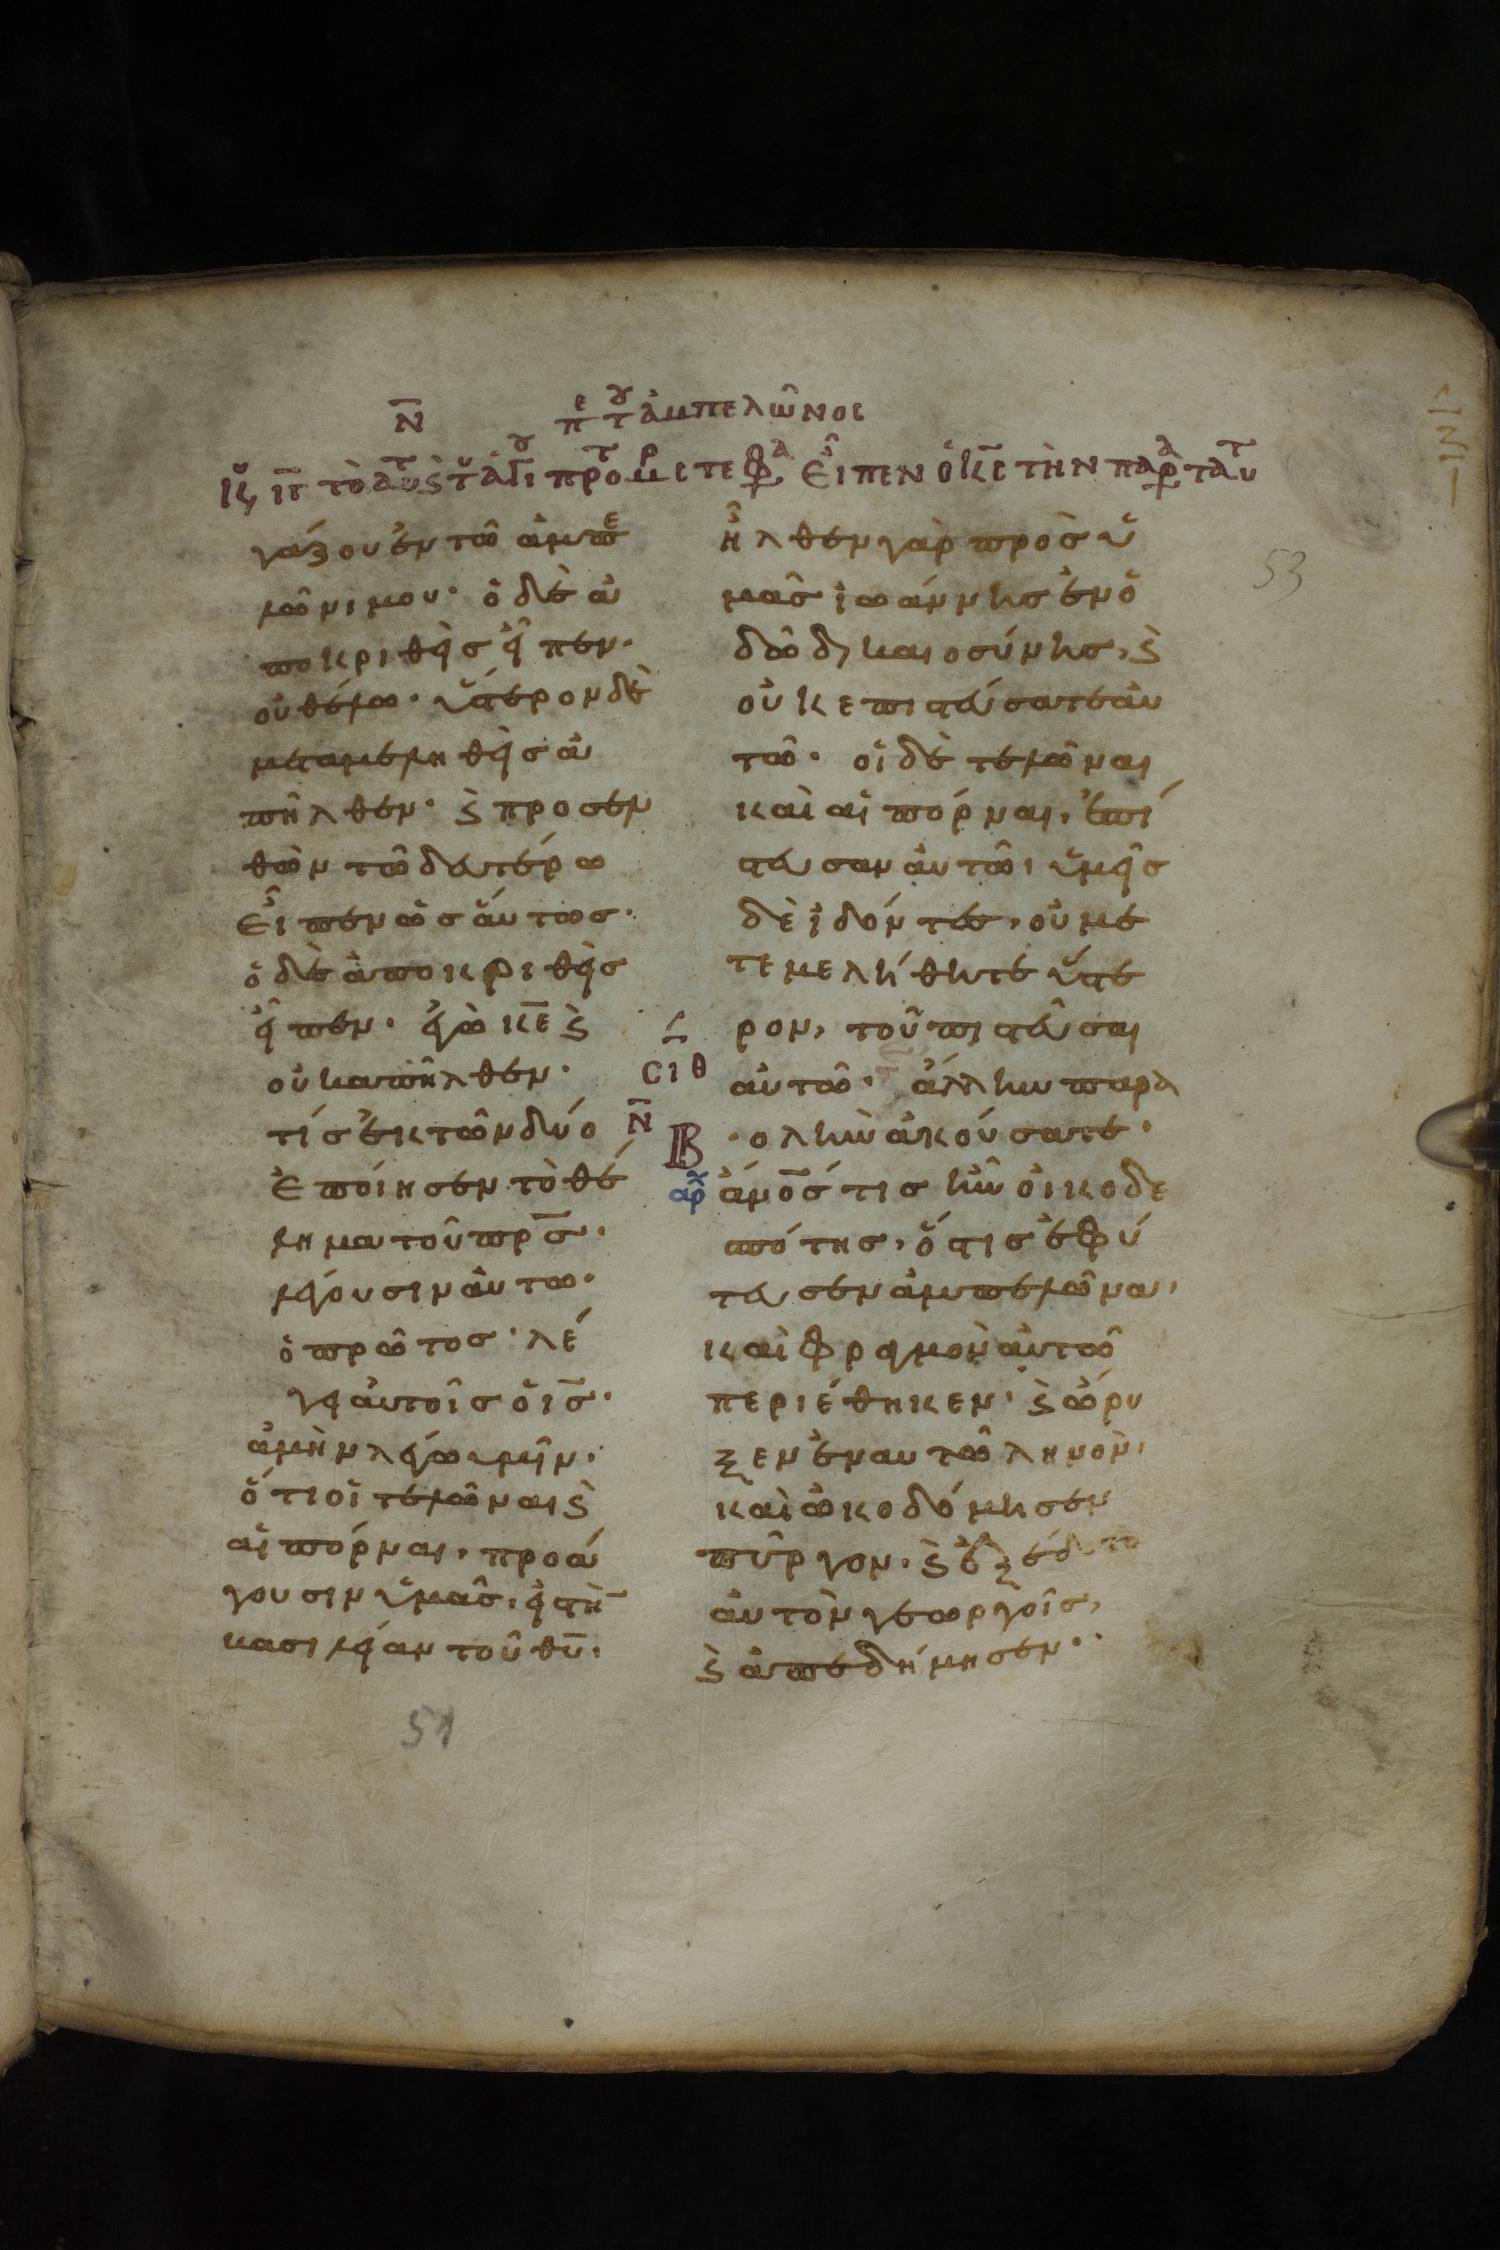 Ν̅ πε του ἀμπελῶνος
εἶπεν ὁ κ̅ε̅ τὴν παρα ταυτ
γάζου ἐν τῶ ἀμπε
λῶνι μου· ὁ δὲ ἀ
ποκριθεὶς εἶπεν·
οὐ θέλω· ὕστερον δὲ
μεταμεληθεὶς ἀ
πῆλθεν· ϗ προσελ
θὼν τῶ δευτέρω
εἶπεν ὡσαύτως·
ὁ δὲ ἀποκριθεὶς
εἶπεν· ἐγὼ κ̅ε̅ ϗ
οὐκ ἀπῆλθεν·
τίς ἐκ τῶν δύο
ἐποίησεν τὸ θέ
λημα τοῦ πρ̅ς̅·
λέγουσιν αὐτω·
ὁ πρῶτος· λέ
γει αὐτοῖς ὁ ι̅ς̅·
ἀμὴν λέγω ὑμῖν·
ὅτι οἱ τελῶναι ϗ
αἱ πόρναι, προά
γουσιν ὑμᾶς, εἰς τὴν
βασιλείαν τοῦ θ̅υ̅·
51
ἦλθεν γὰρ πρὸς ὑ
μᾶς ἰωάννης ἐν ὁ
δῶ δικαιοσύνης, ϗ
οὐκ επιστεύσατε αὐ
τῶ· οἱ δὲ τελῶναι
καὶ αἱ πόρναι, ἐπί
στευσαν αὐτῶ· ὑμεῖς
δὲ ἰδόντες, οὐ με
τεμελήθητε ὕστε
ρον, τοῦ πιστεῦσαι
αὐτῶ· ἄλλην παρα
σιθ
Ν̅
Β
βολὴν ἀκούσατε·
αρχ ἄνο̅ς̅ τις ἦν οἰκοδε
σπότης, ὅστις ἐφύ
τευσεν ἀμπελῶνα,
καὶ φραγμὸν αὐτῶ
περιέθηκεν· ϗ ὤρυ
ξεν ἐν αυτῶ ληνὸν,
καὶ ὠκοδόμησεν
πῦργον· ϗ ἐξέδετο
αὐτὸν γεωργοῖς,
ϗ ἀπεδήμησεν·
53